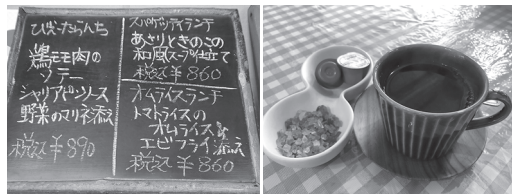 びぃーたらんち
鶏モモ肉の
ソテー
シャリアピンソース
野菜のマリネ添え
税込￥890
スパゲッティランチ
あさりときのこの
和風スープ仕立て
税込￥860
オムライスランチ
トマトライスの
オムライス
エビフライ添え
税込￥860